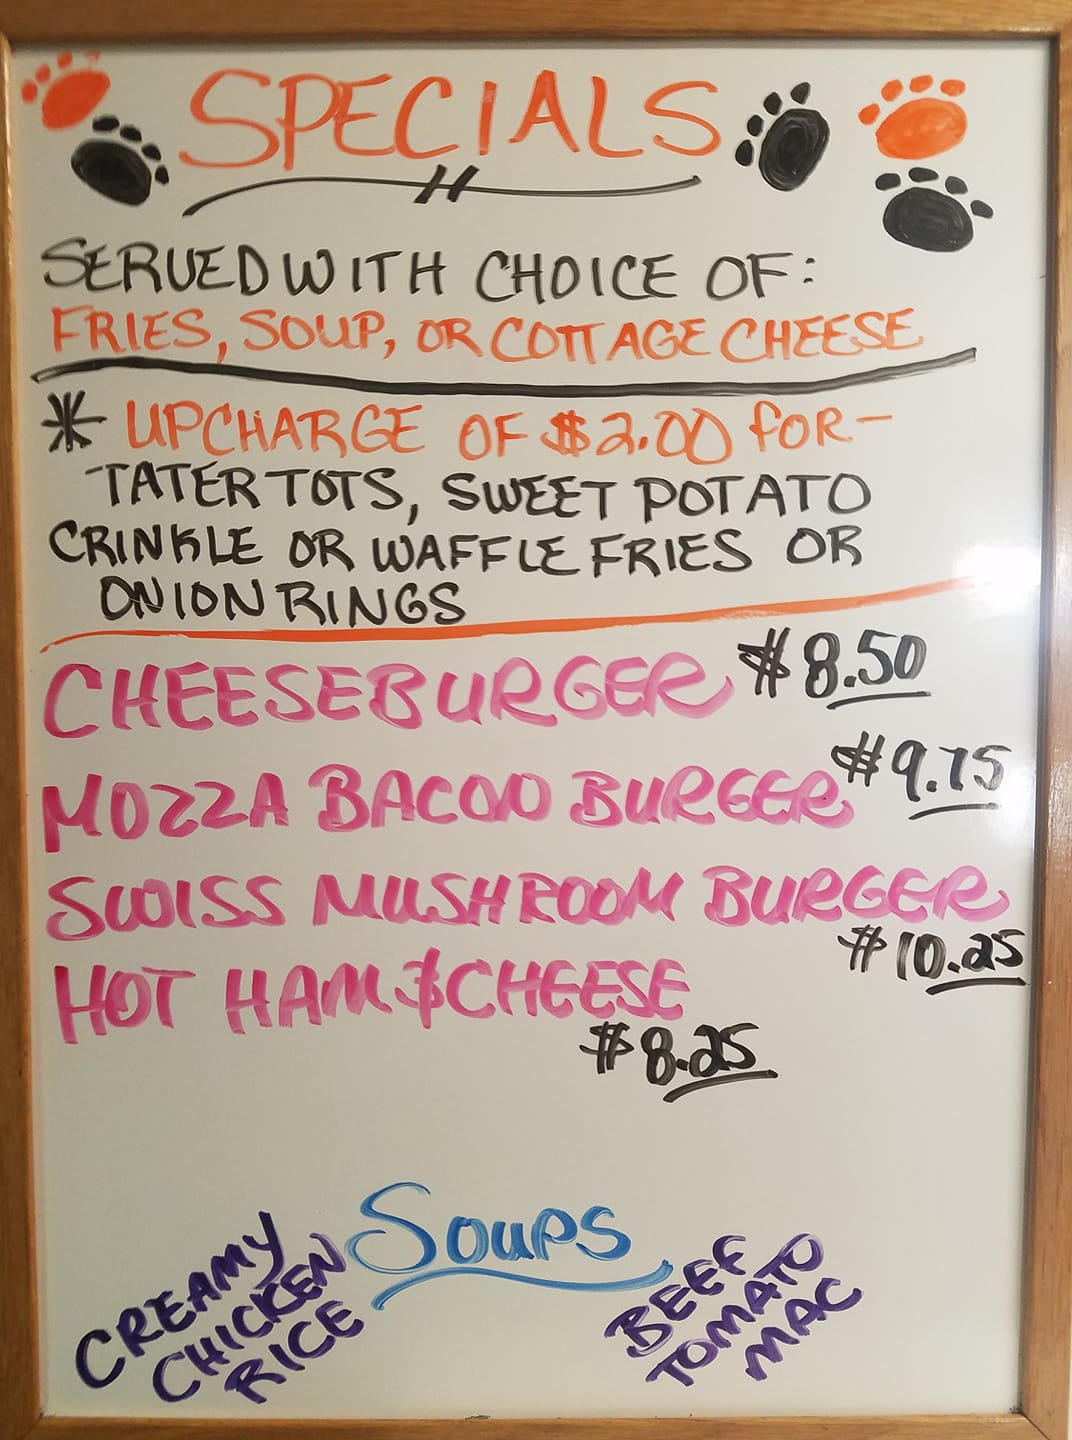 SPECIALS
SERVED WITH CHOICE OF:
FRIES, SOUP, OR COTTAGE CHEESE
* UPCHARGE OF $2.00 FOR-
TATER TOTS, SWEET POTATO
CRINKLE OR WAFFLE FRIES OR
ONION RINGS
CHEESEBURGER $8.50
MOZZA BACON BURGER $9.75
SWISS MUSHROOM BURGER
$10.25
HOT HAM & CHEESE
$8.25
SOUPS
CREAMY
CHICKEN
RICE
BEEF
TOMATO
MAC